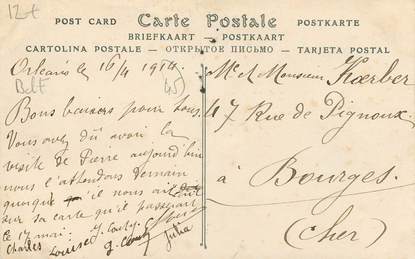 12t
POST CARD Carte Postale POSTKARTE
BRIEFKAART - POSTKAART
CARTOLINA POSTALE - ОТКРЫТОЕ ПИСЬМО - TARJETA POSTAL
Orléans le 16/4 1914.
45
Bons baisers pour tous.
Vous avez dû avoir la
visite de Pierre aujourd'hui
nous l'attendons demain
quoique il nous ait écrit
sur sa carte qu'il passerait
le 17 mai.
Charles Louise Julia
Mr et Monsieur Kœrber
47 Rue de Pignoux
à Bourges.
(Cher)